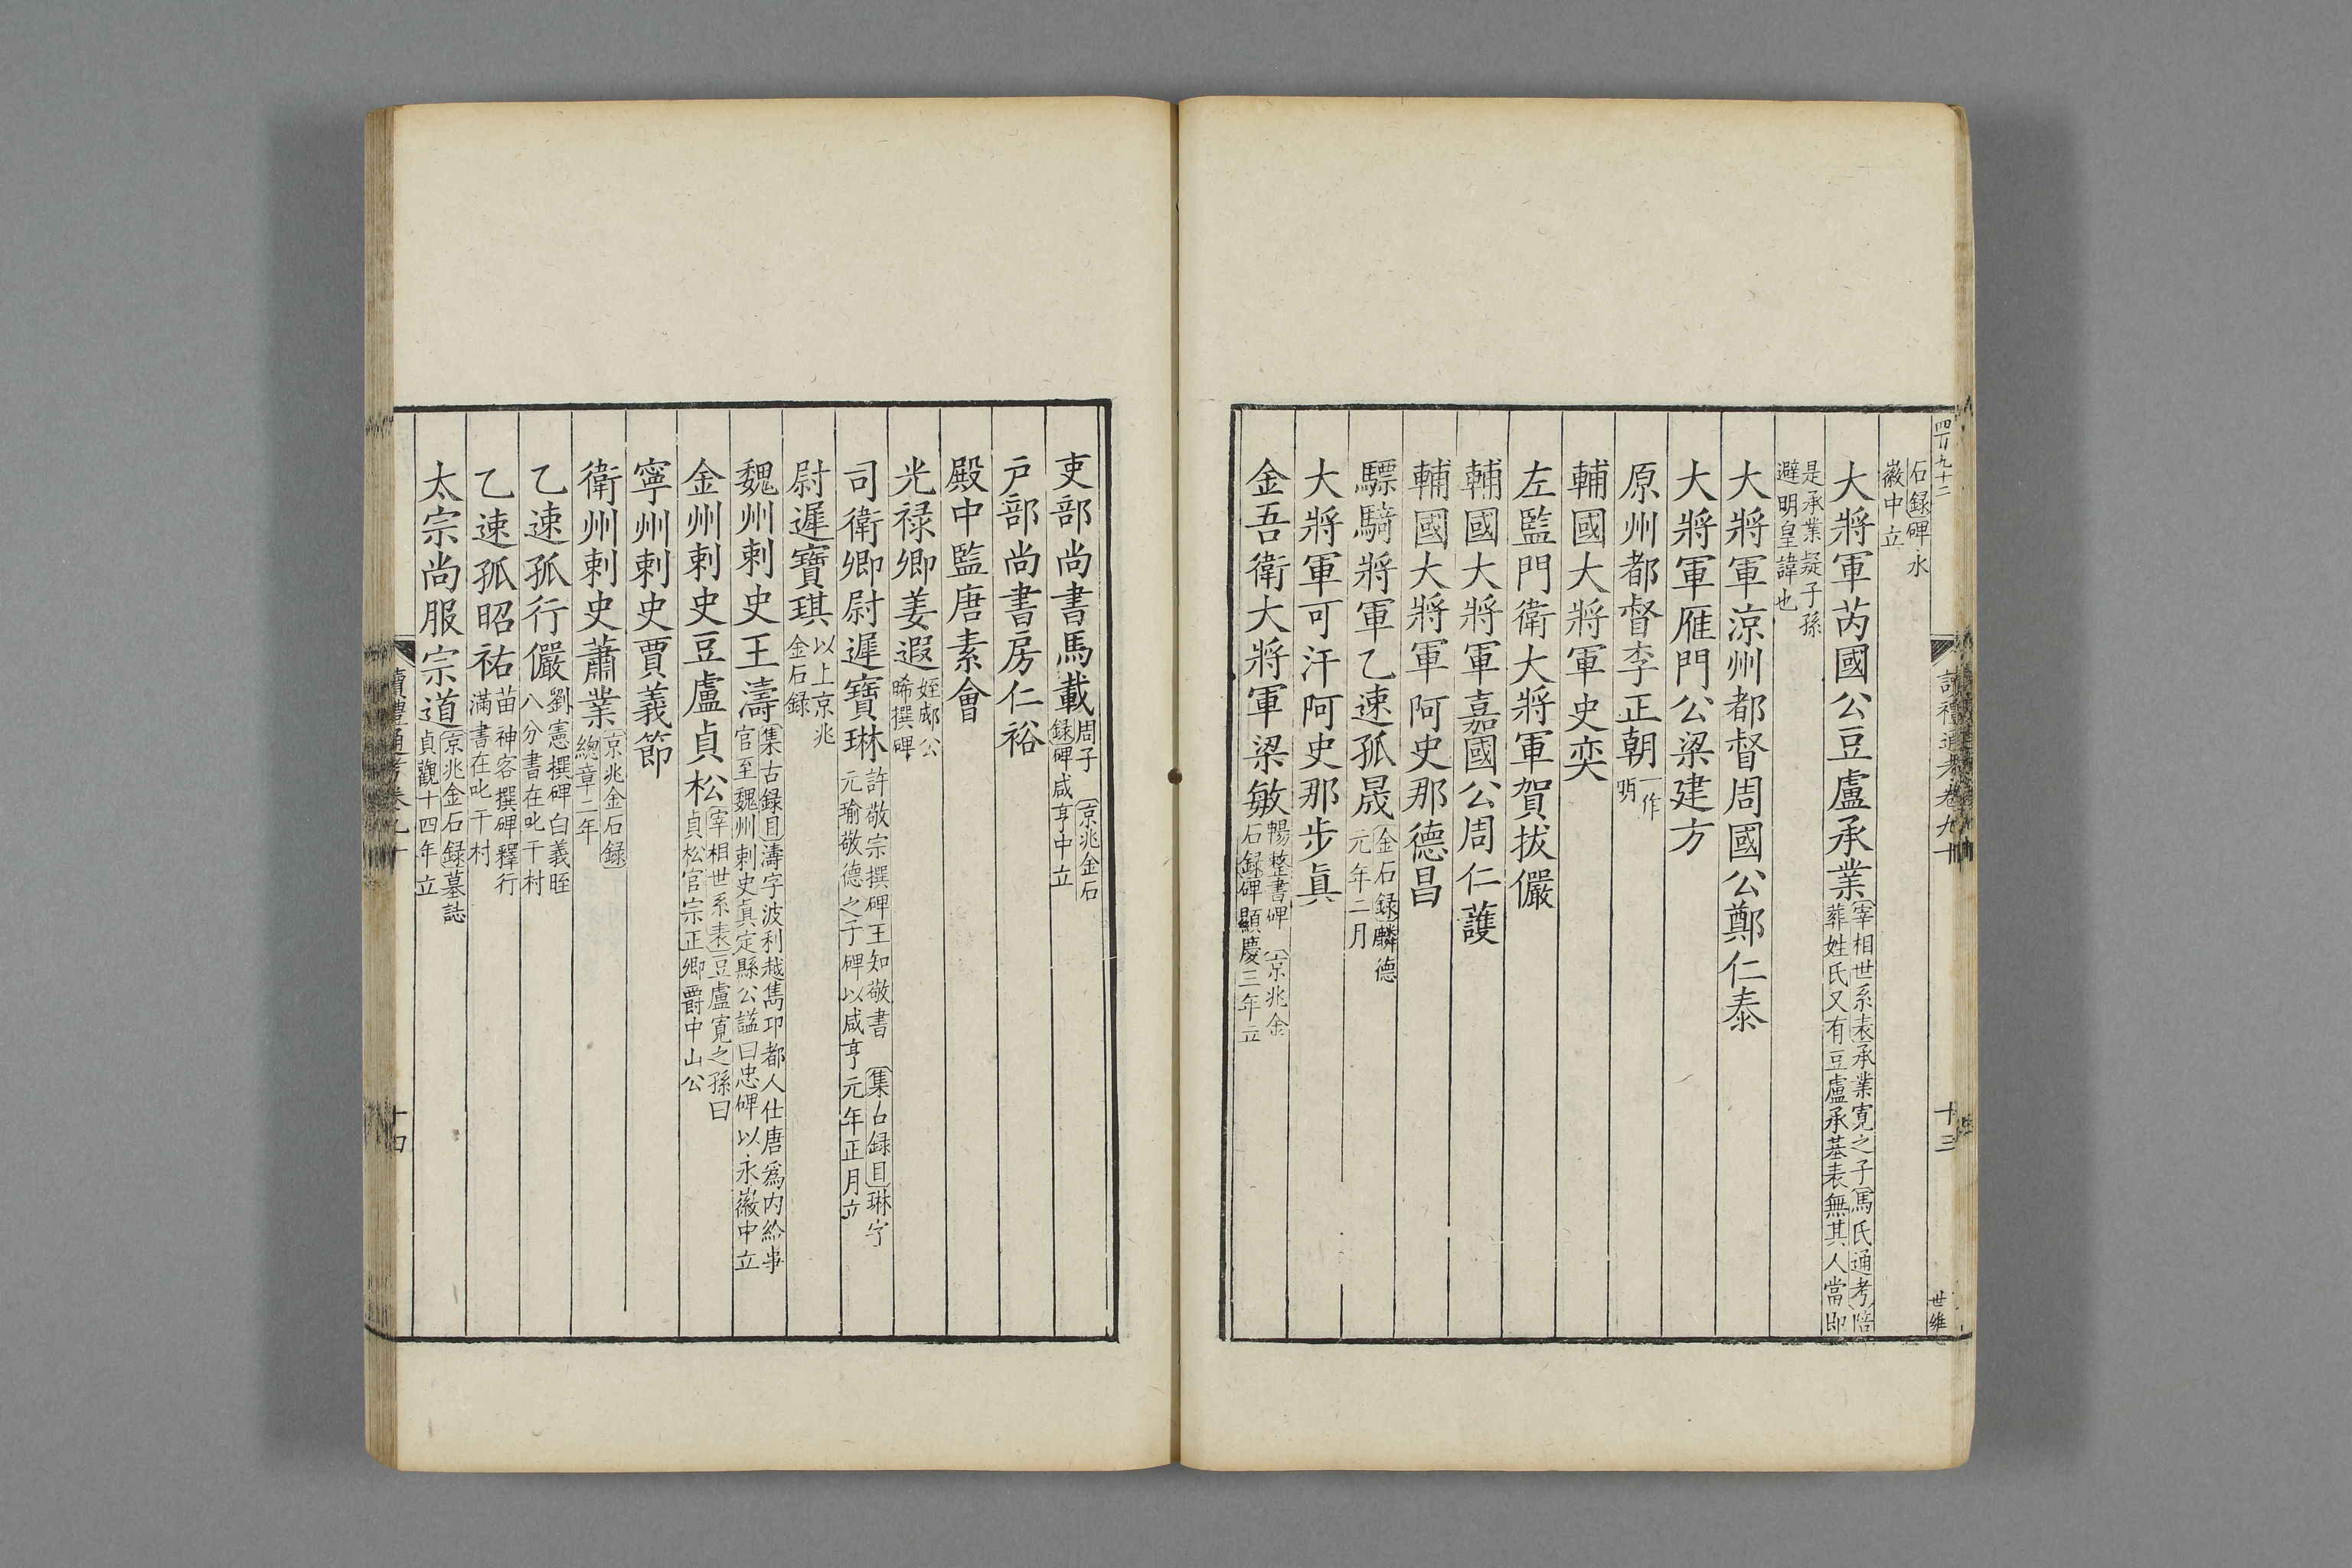 四百九十二
讀禮通考卷九十
十三
世維
石錄碑永
徽中立
大將軍芮國公豆盧承業宰相世系表承業寬之子馬氏通考陪
葬姓氏又有豆盧承基表無其人當卽
是承業疑子孫
避明皇諱也
大將軍涼州都督周國公鄭仁泰
大將軍雁門公梁建方
原州都督李正朝一作
明
輔國大將軍史奕
左監門衛大將軍賀拔儼
輔國大將軍嘉國公周仁護
輔國大將軍阿史那德昌
驃騎將軍乙速孤晟金石録麟德
元年二月
大將軍可汗阿史那步真
金吾衛大將軍梁敏暢整書碑 京兆金
石録碑顯慶三年立
吏部尚書馬載周子 京兆金石
録碑咸亨中立
戸部尚書房仁裕
殿中監唐素會
光禄卿姜遐姪郕公
晞撰碑
司衛卿尉遲寶琳許敬宗撰碑王知敬書 集古録目琳字
元瑜敬德之子碑以咸亨元年正月立
尉遲寶琪以上京兆
金石録
魏州刺史王濤集古録目濤字波利越雋邛都人仕唐爲内給事
官至魏州刺史真定縣公謚曰忠碑以永徽中立
金州刺史豆盧貞松宰相世系表豆盧寬之孫曰
貞松官宗正卿爵中山公
寧州刺史賈義節
衛州刺史蕭業京兆金石録
總章二年
乙速孤行儼劉憲撰碑白義晊
八分書在叱干村
乙速孤昭祐苗神客撰碑釋行
滿書在叱干村
太宗尚服宗道京兆金石録墓誌
貞觀十四年立
讀禮通考卷九十
十四